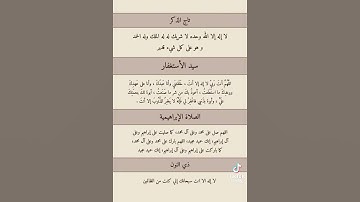 تاج الذكر
لا إله إلا الله وحده لا شريك له له الملك وله الحمد
و هو على كل شيء قدير
سيد الأستغفار
اللهم أنت ربي لا إله إلا أنت ، خلقتني وأنا عبدك ، وأنا على عهدك
ووعدك ما استطعت ، أعوذ بك من شر ما صنعت ، أبوء لك بنعمتك
علي ، وأبوء بذنبي فاغفر لي فإنه لا يغفر الذنوب إلا أنت .
الصلاة الإبراهيمية
اللهم صل على محمد وعلى آل محمد، كما صليت على إبراهيم وعلى
آل إبراهيم، إنك حميد مجيد، اللهم بارك على محمد وعلى آل محمد،
كما باركت على إبراهيم وعلى آل إبراهيم، إنك حميد مجيد
ذي النون
لا إله الا انت سبحانك إني كنت من الظالمين